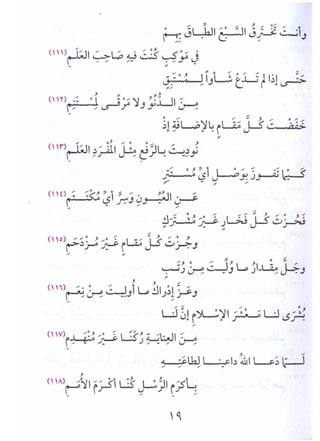 وأنتَ تَخْتَرِقُ السَّبْعَ الطِّبَاقَ بِهِمْ
في مَوْكِبٍ كُنْتَ فيهِ صَاحِبَ العَلَمِ (١١١)
حَتَّى إذا لم تَدَعْ شَأْواً لِمُسْتَبِقٍ
مِنَ الدُّنُوِّ ولا مَرْقَىً لِمُسْتَنِمِ (١١٢)
خَفَضْتَ كُلَّ مَقَامٍ بالإضَافَةِ إذْ
نُودِيتَ بالرَّفْعِ مِثْلَ المُفْرَدِ العَلَمِ (١١٣)
كَيْمَا تَفُوزَ بِوَصْلٍ أيِّ مُسْتَتِرٍ
عَنِ العُيُونِ وَسِرٍّ أيِّ مُكْتَتَمِ (١١٤)
فَحُزْتَ كُلَّ فَخَارٍ غَيْرَ مُشْتَرَكٍ
وجُزْتَ كُلَّ مَقَامٍ غَيْرَ مُزْدَحَمِ (١١٥)
وجَلَّ مِقْدَارُ ما وُلِّيتَ مِنْ رُتَبٍ
وعَزَّ إدْرَاكُ ما أُولِيتَ مِنْ نِعَمِ (١١٦)
بُشْرَى لنا مَعْشَرَ الإسْلامِ إنَّ لنا
مِنَ العِنَايَةِ رُكْنَاً غَيْرَ مُنْهَدِمِ (١١٧)
لَمَّا دَعَا اللهُ داعينا لِطَاعَتِهِ
بِأكْرَمِ الرُّسْلِ كُنَّا أكْرَمَ الأُمَمِ (١١٨)
١٩